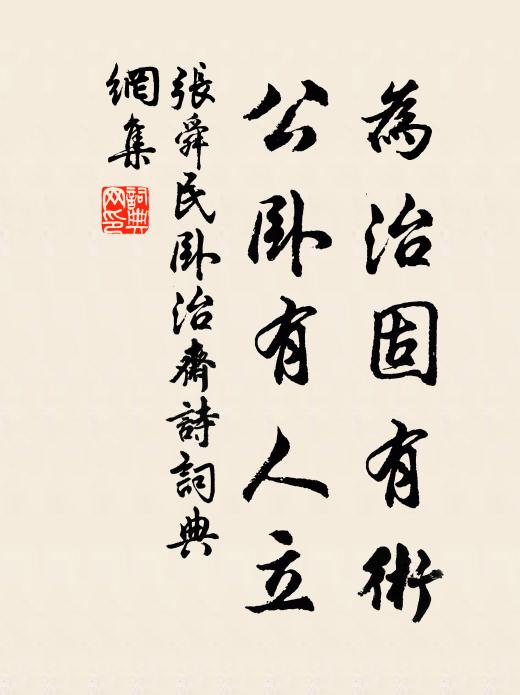 為治固有術
公卧有人立
張舜民卧治齋詩詞典
網集
詞典
網印